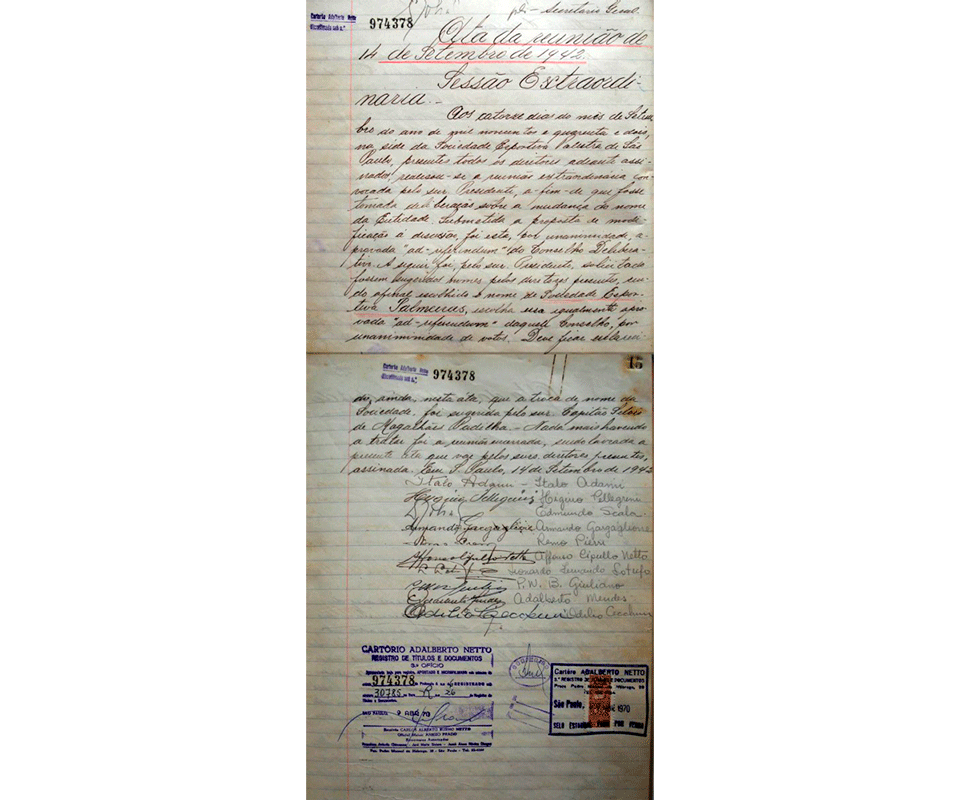 Cartório Adalberto Netto
974378
Secretario Geral
Ata da reunião de
14 de Setembro de 1942.
Sessão Extraordi-
naria.-
Aos catorze dias do mês de Setem-
bro do ano de mil novecentos e quarenta e dois,
na séde da Sociedade Esportiva Palestra de São
Paulo, presentes todos os diretores adeante assi-
nados, realisou-se a reunião extraordinária con-
vocada pelo snr. Presidente, a-fim-de que fosse
tomada deliberação sobre a mudança do nome
da Entidade. Submetida a proposta de modi-
ficação á discussão, foi esta, por unanimidade, a-
provada "ad-referendum" do Conselho Delibera-
tivo. A seguir foi, pelo snr. Presidente, solicitado
fossem sugeridos nomes pelos diretores presentes, sen-
do afinal escolhido o nome de Sociedade Espor-
tiva Palmeiras, escolha essa igualmente apro-
vada "ad-referendum" daquele Conselho, por
unanimidade de votos. Deve ficar
Cartório Adalberto Netto
974378
15
do, ainda, nesta áta, que a troca de nome da
Sociedade, foi sugerida pelo snr. Capitão Silvio
de Magalhães Padilha. - Nada mais havendo
a tratar foi a reunião encerrada, sendo lavrada a
presente ata que vae pelos snrs. diretores presentes,
assinada. Em S. Paulo, 14 de Setembro de 1942
Italo Adami - Italo Adami
Higino Pellegrini Higino Pellegrini
Edmundo Scala
Armando Gargaglione Armando Gargaglione
Remo Pierri
Affonso Cipullo Netto
Leonardo Fernando Lotufo
P. W. B. Giuliano
Adalberto Mendes
Odilio Cecchini Odilio Cecchini
CARTÓRIO ADALBERTO NETTO
REGISTRO DE TÍTULOS E DOCUMENTOS
3.º OFÍCIO
974378
30785 R 26
SÃO PAULO, 9 ABR 70
Cartório ADALBERTO NETTO
3.º REGISTRO DE TÍTULOS E DOCUMENTOS
São Paulo, 1970
SELO ESTADUAL PAGO POR VERBA